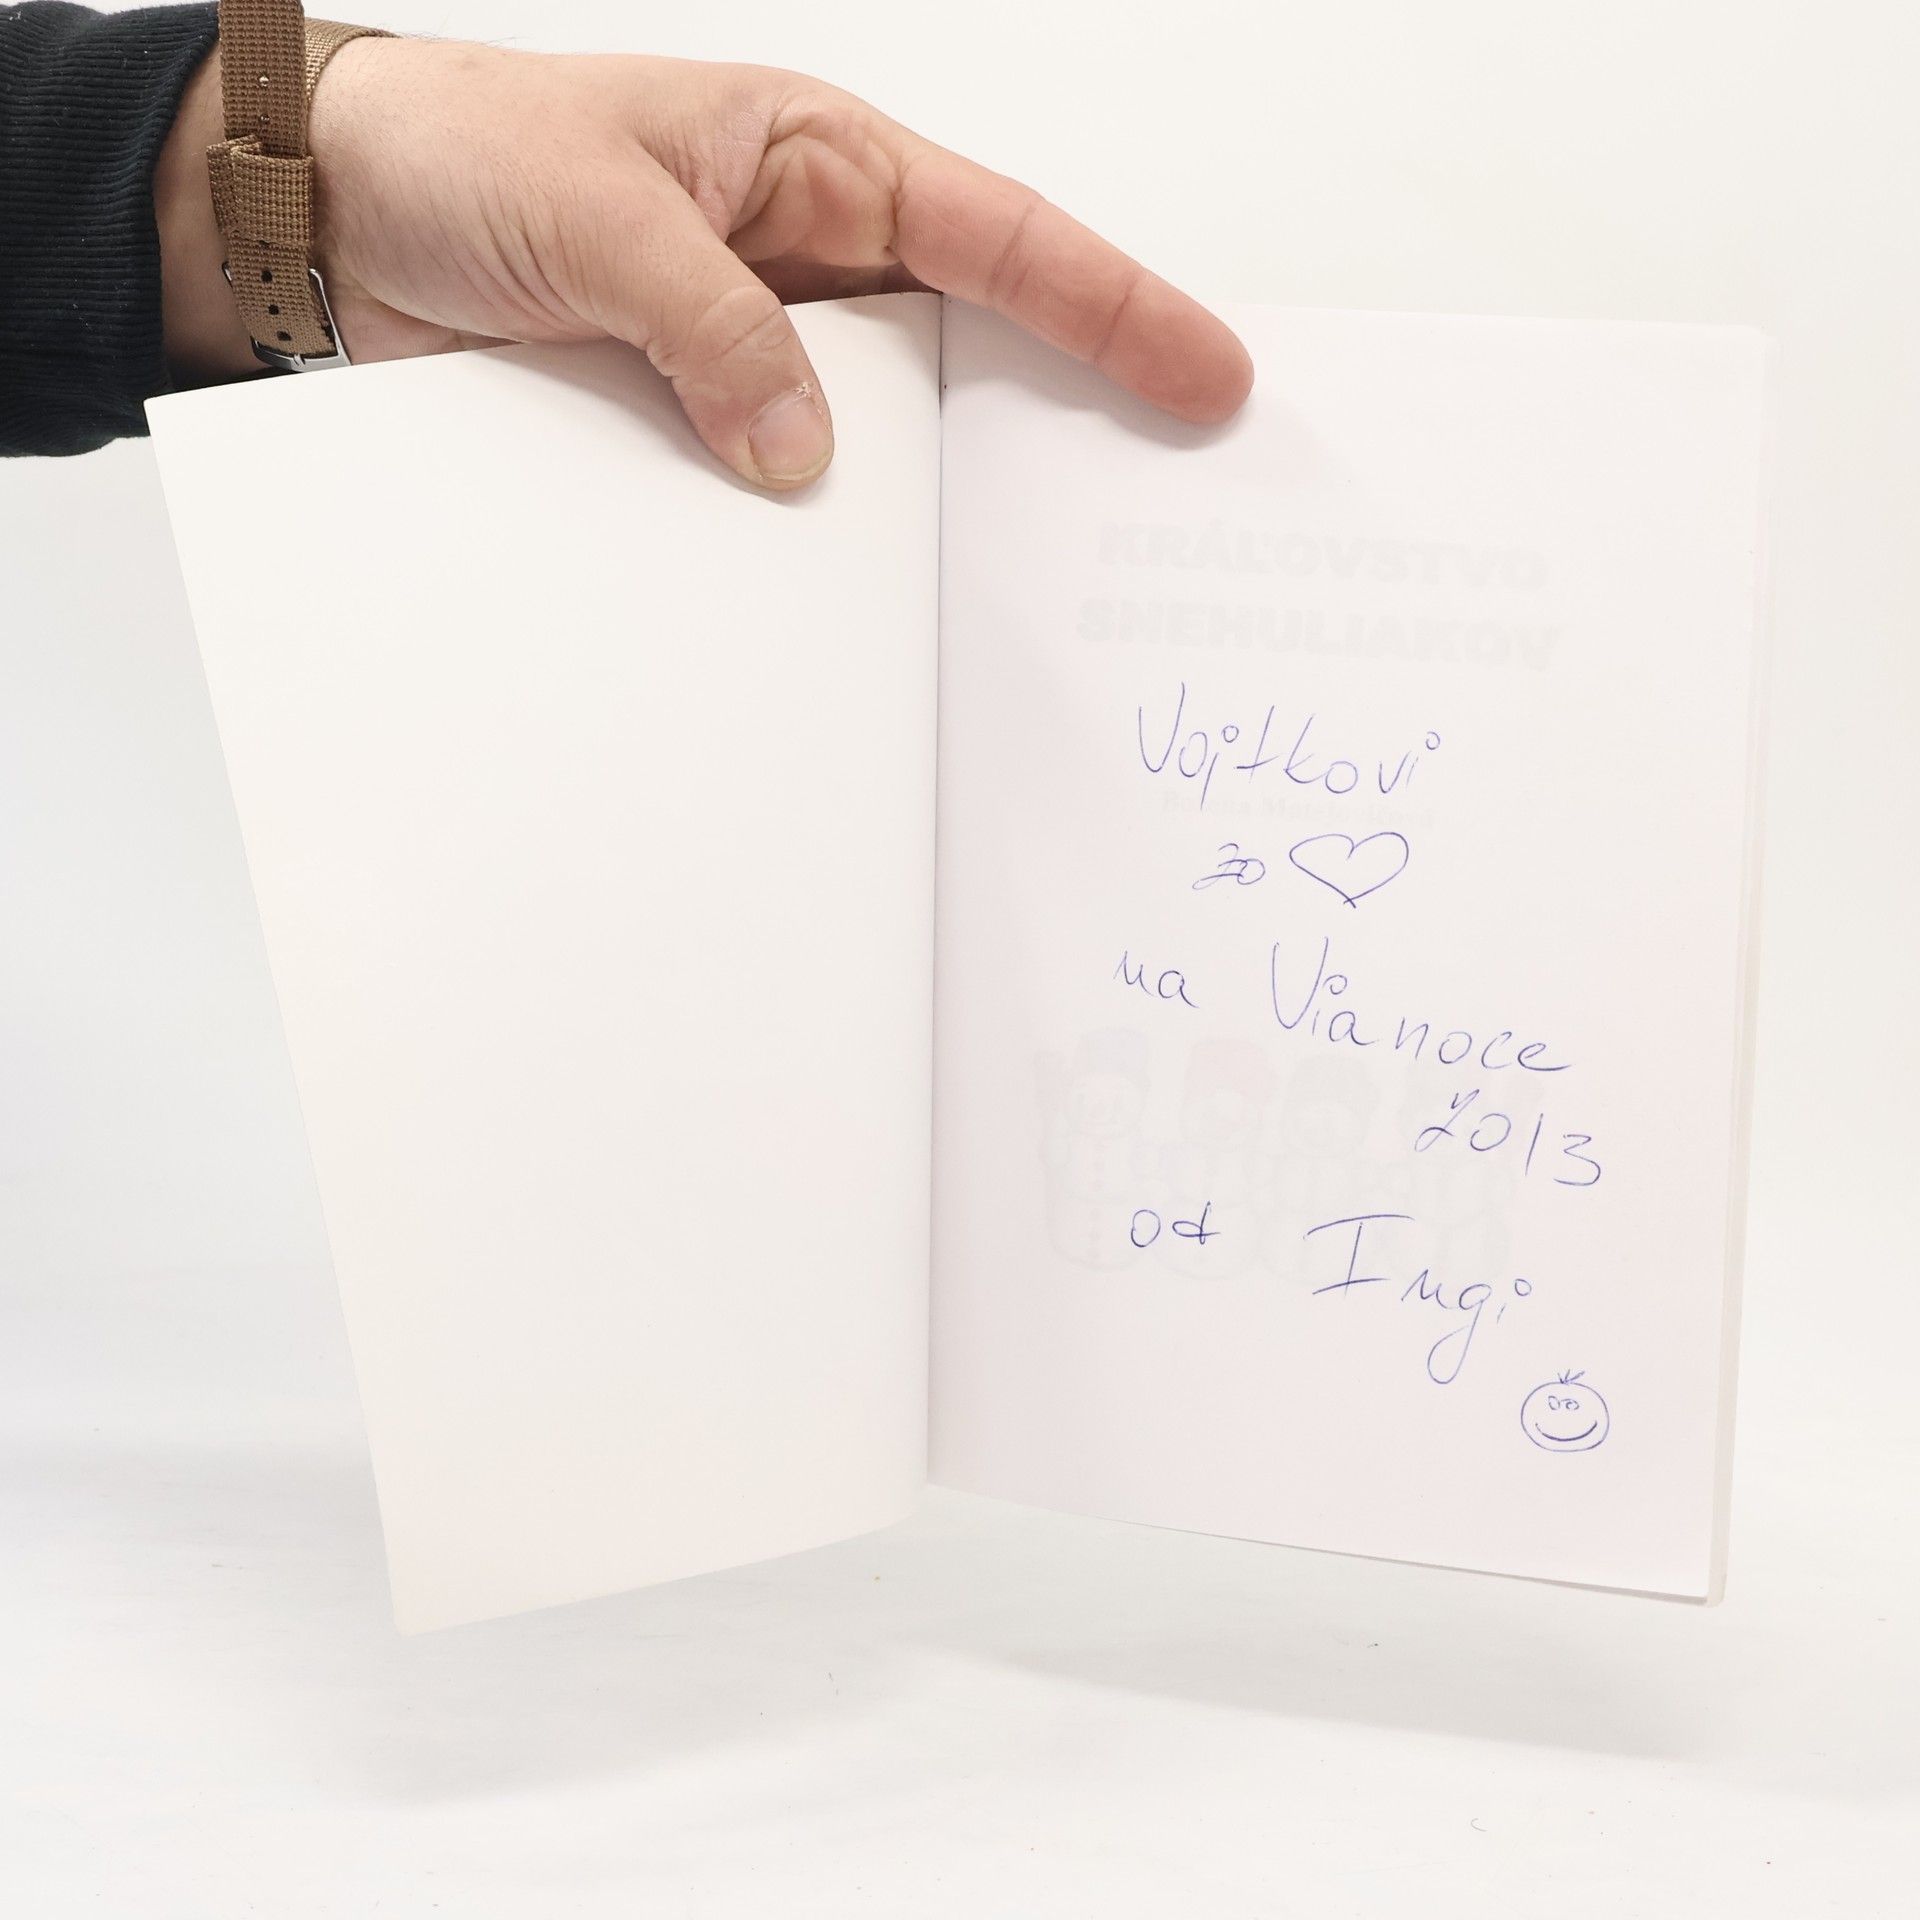 KRÁĽOVSTVO
SNEHULIAKOV
Vojtkovi
Božena Matejovičová
zo
na Vianoce
2013
od Ingi